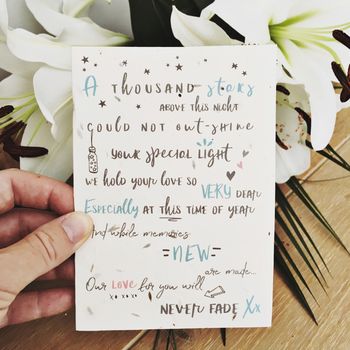 A THOUSAND stars
ABOVE THIS NIGHT
COULD NOT OUT-SHINE
YOUR SPECIAL LIGHT
WE HOLD YOUR LOVE SO VERY DEAR
ESPECIALLY AT THIS TIME OF YEAR
And while memories
=NEW=
are made...
Our LOVE for you will
xo xoxo
NEVER FADE Xx